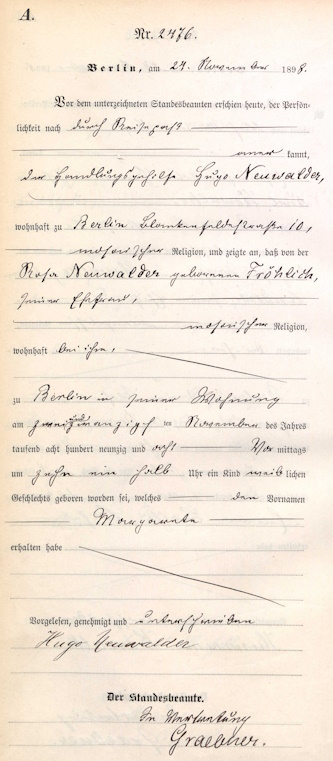 A.
Nr. 2476.
Berlin, am 24. November 1898.
Vor dem unterzeichneten Standesbeamten erschien heute, der Persön-
lichkeit nach durch Reisepaß
anerkannt,
der Handlungsgehilfe Hugo Neuwalder,
wohnhaft zu Berlin Blankenfeldestraße 10,
mosaischer Religion, und zeigte an, daß von der
Rosa Neuwalder geborenen Fröhlich,
seiner Ehefrau,
mosaischer Religion,
wohnhaft bei ihm,
zu Berlin in seiner Wohnung
am zweiundzwanzigsten November des Jahres
tausend acht hundert neunzig und acht Vormittags
um zehn ein halb Uhr ein Kind weiblichen
Geschlechts geboren worden sei, welches den Vornamen
Margarete
erhalten habe
Vorgelesen, genehmigt und unterschrieben
Hugo Neuwalder
Der Standesbeamte.
In Vertretung
Graebner.